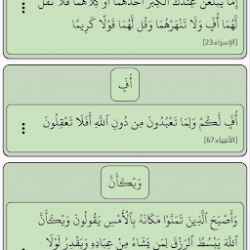 إِمَّا يَبْلُغَنَّ عِندَكَ ٱلْكِبَرَ أَحَدُهُمَآ أَوْ كِلَاهُمَا فَلَا تَقُل
لَّهُمَآ أُفٍّ وَلَا تَنْهَرْهُمَا وَقُل لَّهُمَا قَوْلًا كَرِيمًا
[الإسراء:23]
أُفٍّ
أُفٍّ لَّكُمْ وَلِمَا تَعْبُدُونَ مِن دُونِ ٱللَّهِ أَفَلَا تَعْقِلُونَ
[الأنبياء:67]
وَيْكَأَنَّ
وَأَصْبَحَ ٱلَّذِينَ تَمَنَّوْا۟ مَكَانَهُۥ بِٱلْأَمْسِ يَقُولُونَ وَيْكَأَنَّ
ٱللَّهَ يَبْسُطُ ٱلرِّزْقَ لِمَن يَشَآءُ مِنْ عِبَادِهِۦ وَيَقْدِرُ لَوْلَآ